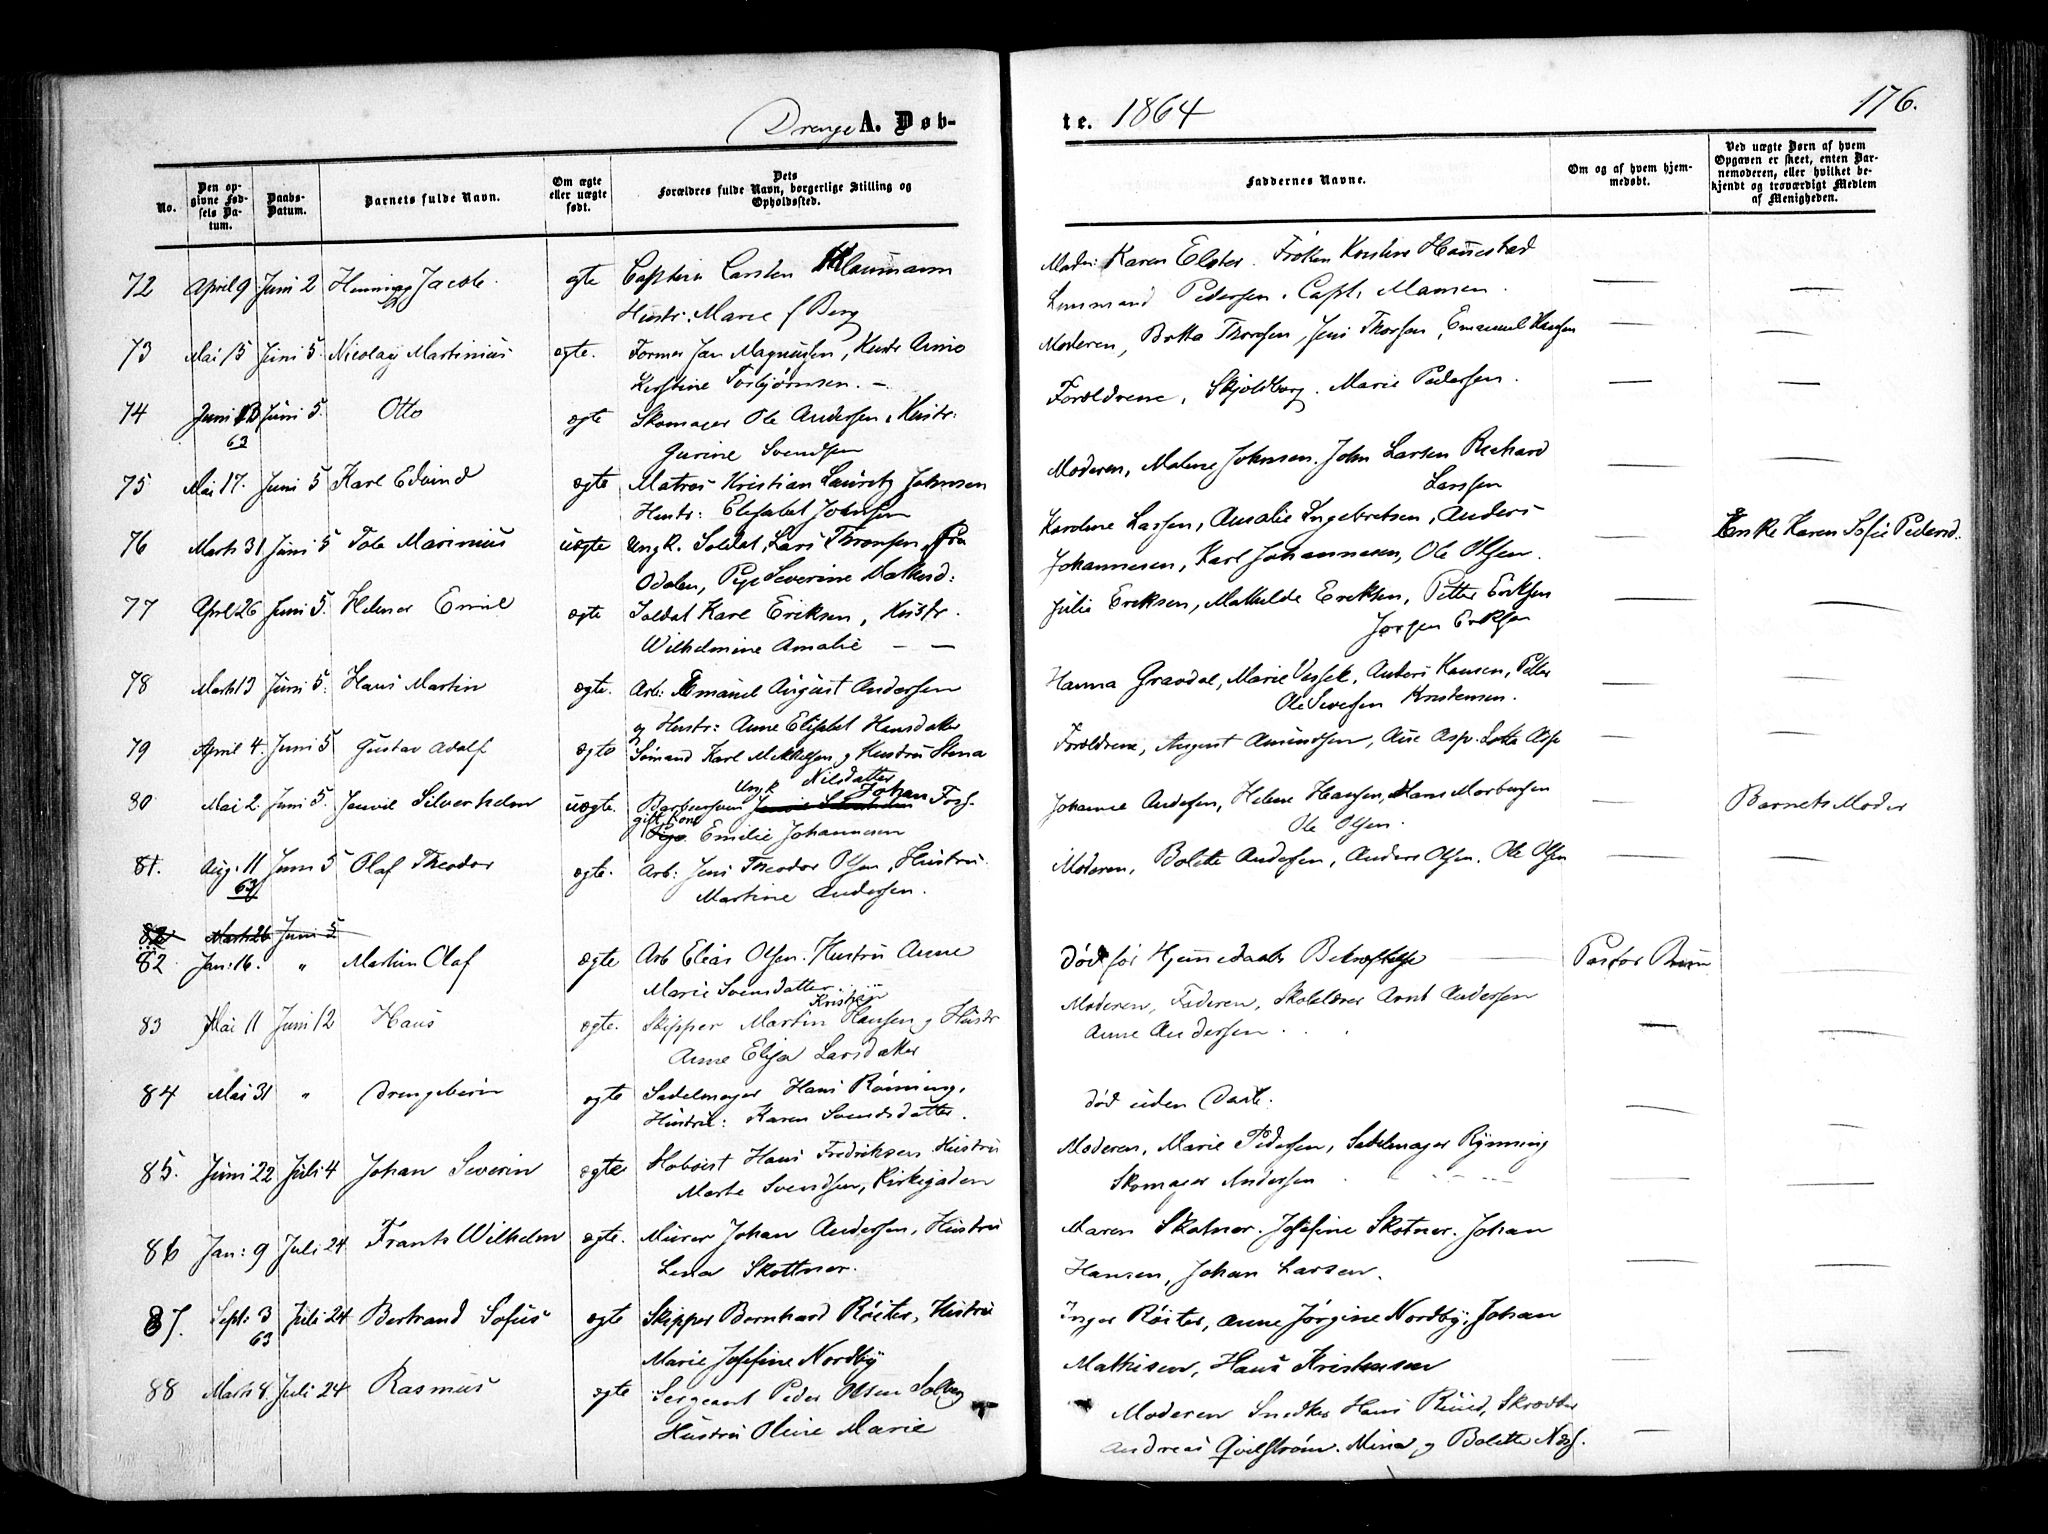 Drenge A. Døb-
te. 1864
176.
No.
Den op-
givne Fød-
sels Da-
tum.
Daabs-
Datum.
Barnets fulde Navn.
Om ægte
eller uægte
født.
Dets
Forældres fulde Navn, borgerlige Stilling og
Opholdssted.
Faddernes Navne.
Om og af hvem hjem-
medøbt.
Ved uægte Børn af hvem
Opgaven er skeet, enten Bar-
nemoderen, eller hvilket be-
kjendt og troværdigt Medlem
af Menigheden.
72 April 9 Juni 2 Henning Jacob. ægte Captein Carsten Maumann
Hustr: Marie f Berg
Karen Elster. Frøken Kirstine Hauestad
Pedersen. Capt. Mamen.
73 Mai 15 Juni 5. Nicolay Martinius ægte. Former Jan Magnusen, Hustr Anne
Kirstine Torbjørnsen. —
Moderen, Betta Thoresen, Jens Thorsen, Emanuel Hansen
74 Juni 13 Juni 5. Otto ægte Skomager Ole Andersen, Hustr:
63
Gurine Svendsen
Forældrene, Skjoldborg. Marie Pedersen.
75 Mai 17. Juni 5 Karl Edvind ægte Matros Kristian Lauritz Johnsen
Hustr: Elisabet Johnsen
Moderen, Malene Johnsen. John Larsen Richard
Larssen
76 Marts 31 Juni 5 Tole Marinius uægte Ungk. Soldat, Lars Thronsen, fra
Odalen, Pige Severine Mathisd:
Karoline Larsen, Amalie Ingebretsen, Anders
Johannesen, Karl Johannesen, Ole Olsen.
Enke Karen Sofie Pedersd.
77 April 26 Juni 5. Helmer Emil ægte Soldat Karl Eriksen, Hustr.
Wilhelmine Amalie — —
Julie Eriksen, Mathilde Eriksen, Petter Eriksen
Jørgen Eriksen
78 Marts 13 Juni 5. Hans Martin ægte. Arb: Emanuel August Andersen
og Hustr: Anne Elisabet Hansdatter
Hanna Gravdal, Marie Vessek, Anders Hansen, Petter
Ole Sivesen Kristensen.
79 April 4. Juni 5 Gustav Adolf ægte Sømand Karl Mikkelsen og Hustru Stina
Nilsdatter
Forældrene, August Amundsen, Ane Asp. Lotta Asp
80 Mai 2. Juni 5. Jenvil Silverhelm uægte. Ungk Johan
Barbersvend
gift Kone
Pige. Emilie Johannesen
Johanne Andersen, Helene Hansen, Hans Morbergsen
Ole Olsen.
Barnets Moder
81. Aug. 11 Juni 5 Olaf Theodor ægte. Arb: Jens Theodor Olsen, Hustru
63
Martine Andersen.
Moderen, Bolette Andersen, Anders Olsen. Ole Olsen
82 Marts 26 Juni 5
82 Jan: 16. " Martin Olaf ægte Arb Elias Olsen. Hustru Anne
Marie Svensdatter
Død før Hjemedaabs Bekræftelse Pastor Bruun
83 Mai 11 Juni 12 Hans ægte. Skipper Martin Hansen og Hustr
Anne Elisa Larsdatter
Moderen, Faderen, Skolelærer Arnt Andersen
Anne Andersen
84 Mai 31 " Drengebarn ægte Sadelmager Hans Rönning,
Hustru: Karen Svendsdatter.
død uden Daab.
85. Juni 22 Juli 4 Johan Severin ægte Hoboist Hans Fredriksen Hustru
Marte Svendsen, Kirkegaden
Moderen, Marie Pedersen, Sadelmager Rynning
Skomager Andersen
86 Jan: 9 Juli 24 Frants Wilhelm ægte. Murer Johan Andersen, Hustru
Lena Skottner.
Maren Skotner. Josefine Skotner. Johan
Hansen, Johan Larsen.
87. Sept: 3 Juli 24 Bertrand Sofus ægte Skipper Bernhard Röiter, Hustru
63
Marie Josefine Nordby
Inger Röiter, Anne Jörgine Nordby, Johan
Mathisen, Hans Kristensen
88 Marts 8. Juli 24 Rasmus ægte Sergeant Peder Olsen Solberg
Hustru Oline Marie
Moderen Snedker Hans Ruud, Skrædder
Andreas Qvilström. Mina, og Bolette Næss.